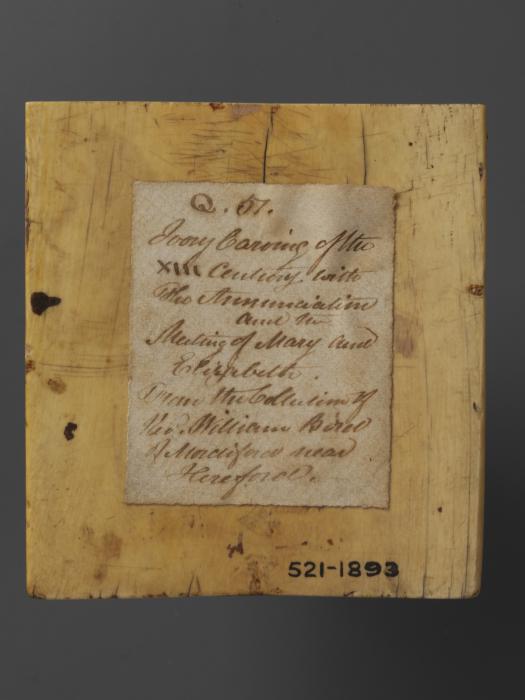 Q. 51.
Ivory Carving of the
XIII Century with
The Annunciation
and the
Meeting of Mary and
Elizabeth.
From the Collection of
Revd. William Bird
of Mordiford near
Hereford.
521-1893